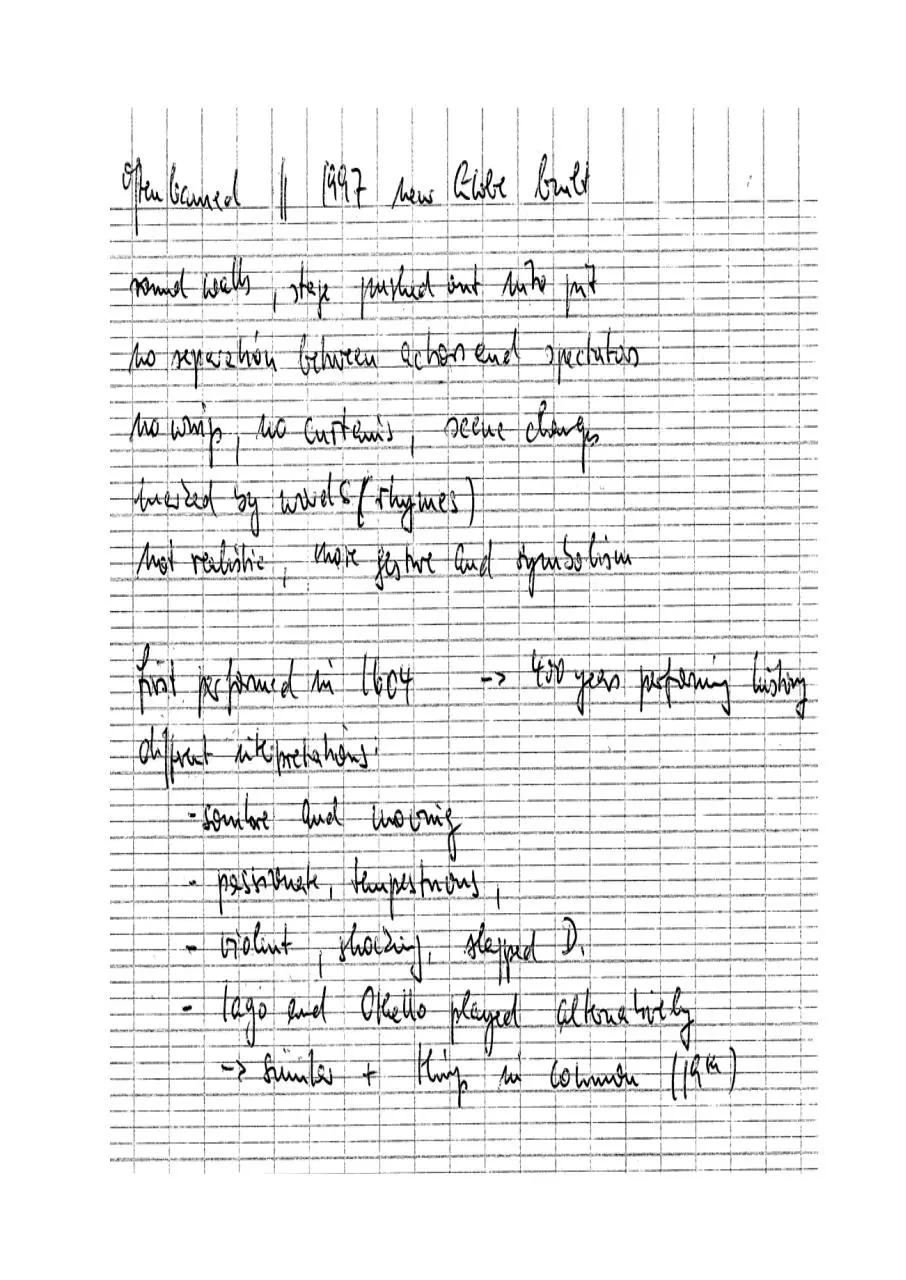 often banned || 1997 new Globe built
round walls, stage pushed out into pit
no separation between actors and spectators
no wings, no curtains, scene changes
marked by words (rhymes)
not realistic, more gesture and symbolism
first performed in 1604 -> 400 years performing history
different interpretations:
- sombre and moving
- passionate, tempestuous,
- violent, shocking, slapped D.
- Iago and Othello played alternatively
-> similar + things in common (19th)